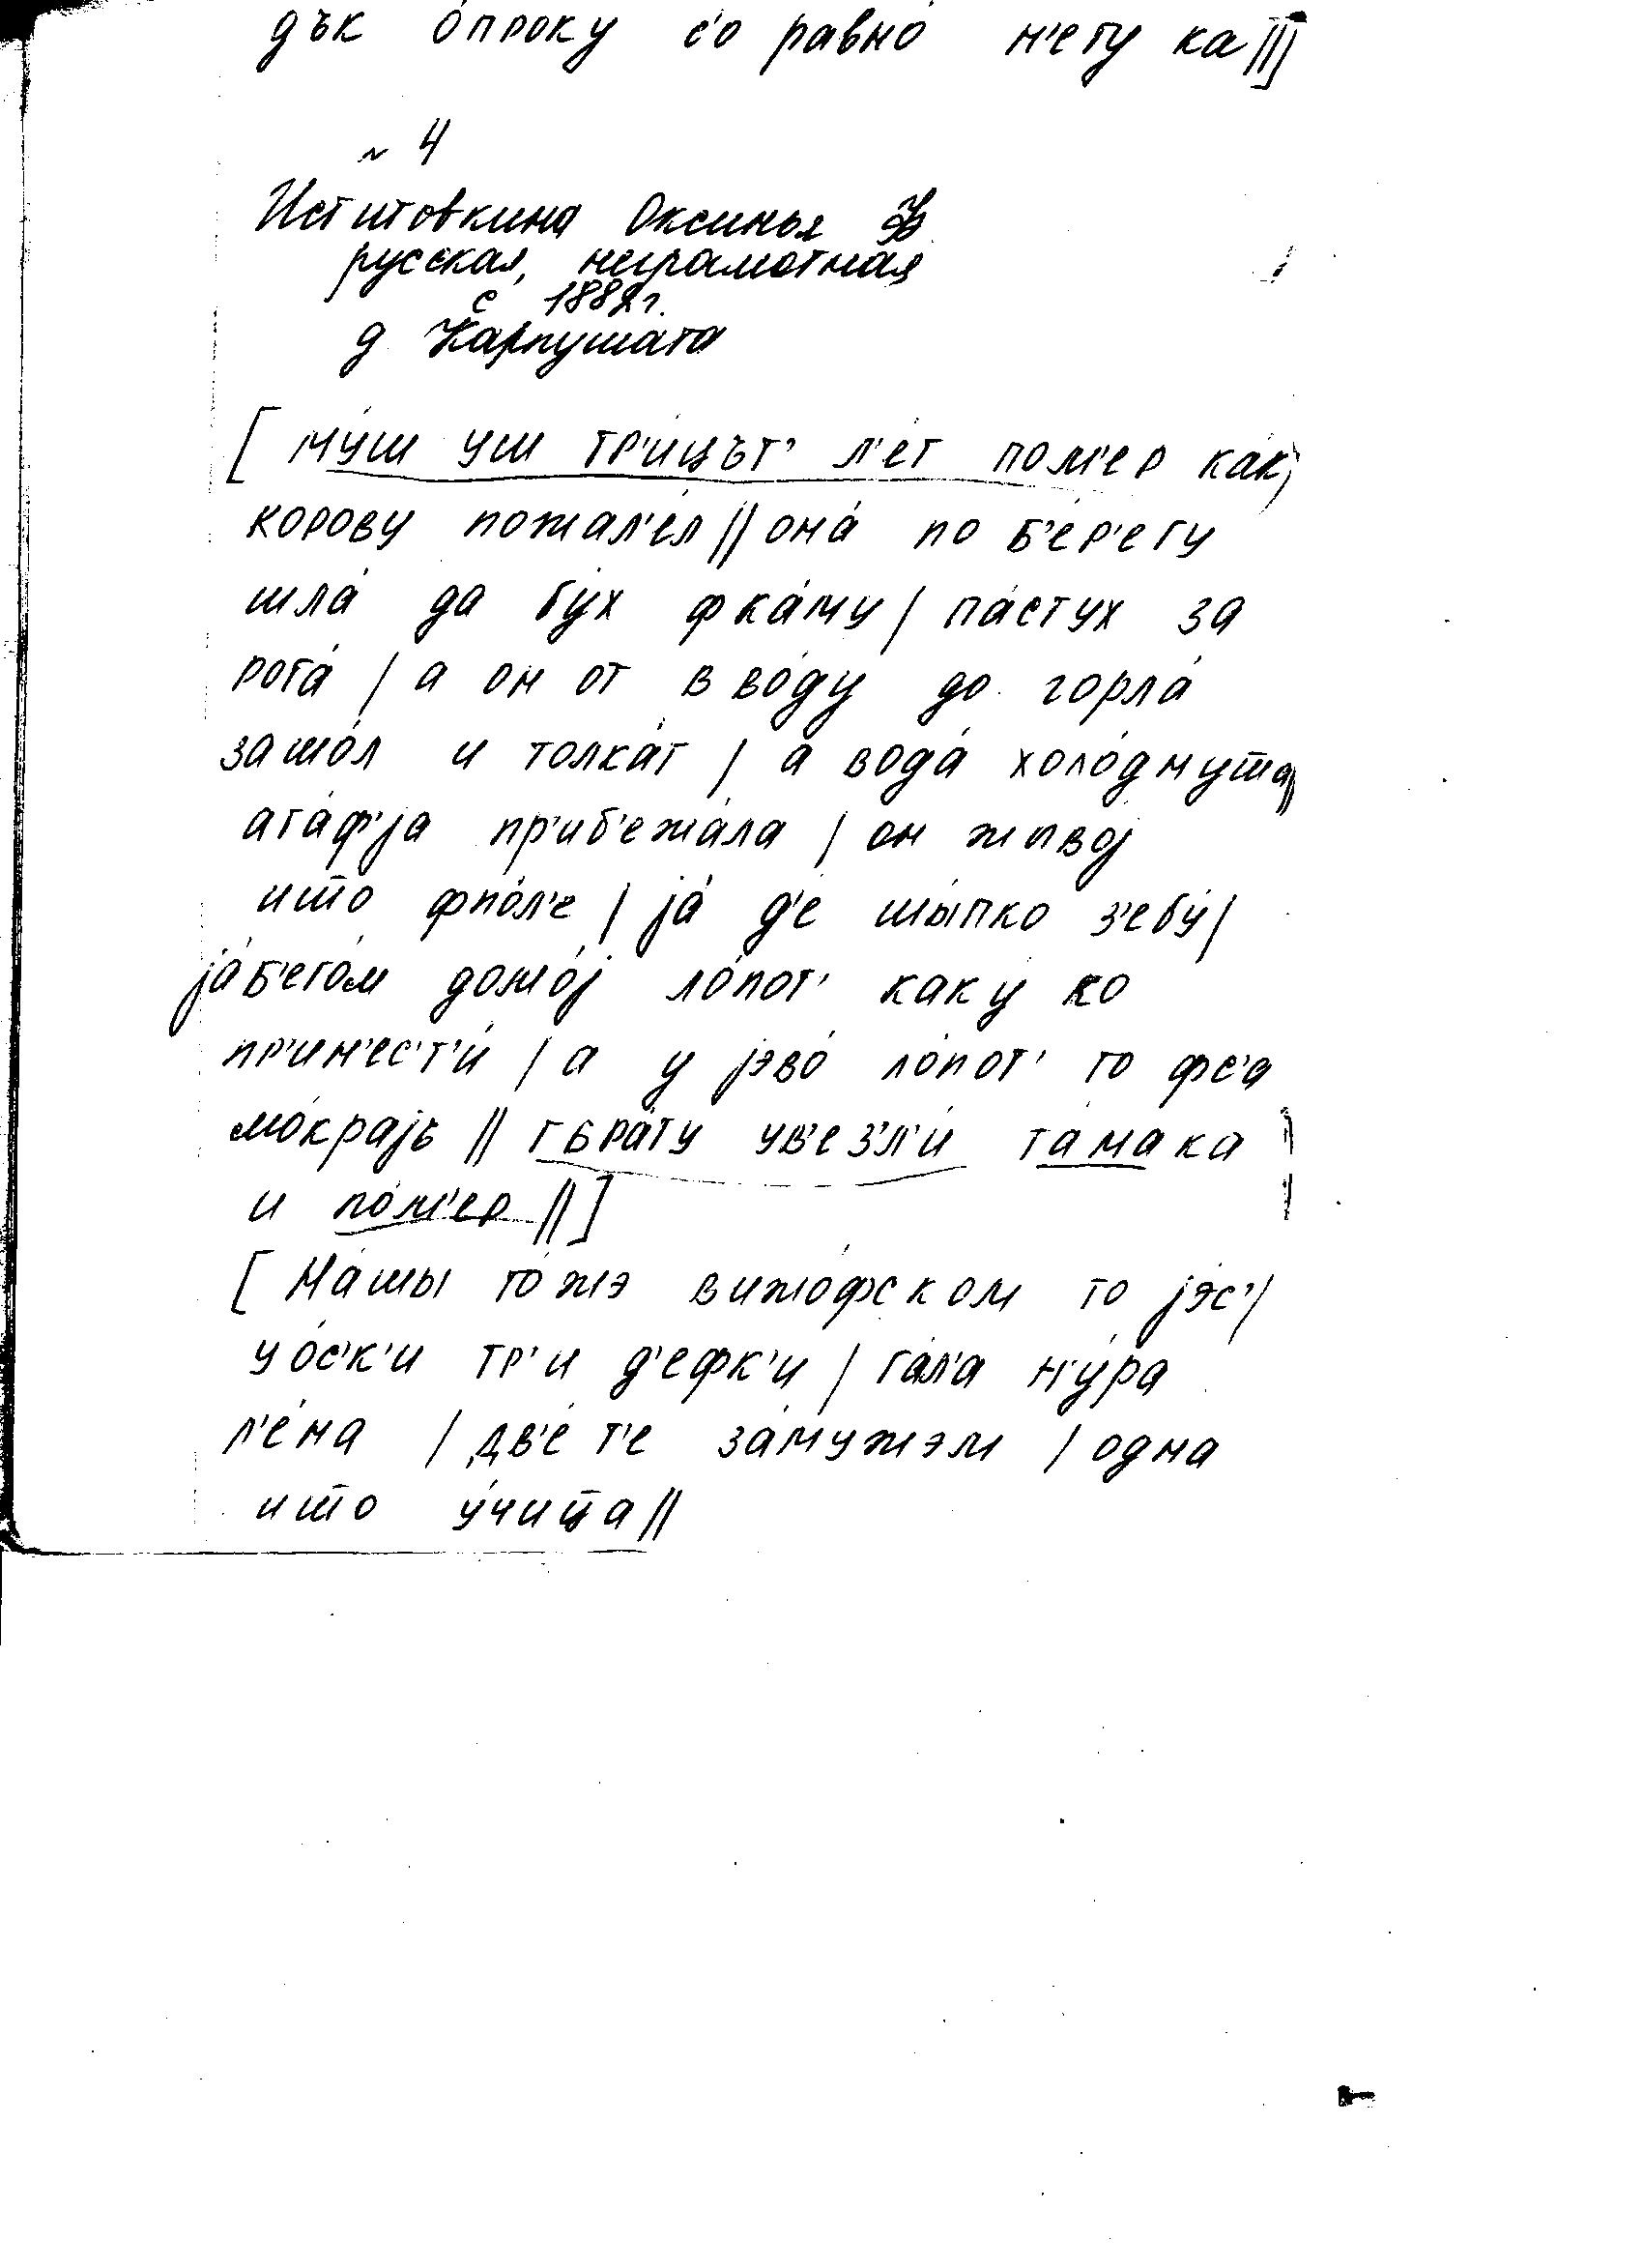 дък о́проку с'о равно́ н'ету ка||]
~ 4
Иститовкина Оксинья
русская, неграмотная
с 1882г.
д Карпушата
[ му́ш уш тр'и́цът' л'е́т пом'ер ка́к/
корову пожал'е́л || она́ по б'е́р'егу
шла́ да бу́х фка́му / па́стух за
рога́ / а он от в во́ду до горла́
зашо́л и толка́т / а вода́ холо́днуш̄а||
ага́ф'jа пр'иб'ежа́ла / он жывоj
иш̄о фпо́л'е / jа́ д'е́ шы́пко з'ебу́/
jа́ б'его́м домо́j ло́пот' каку ко
пр'ин'ес'т'и́ / а у jэво́ ло́пот' то фс'а
мо́краjь || гбра́ту ув'ез'л'и́ та́мака
и по́м'ер || ]
[ На́шы то́жэ вижо́фском то jэ́с'/
у о́с'к'и тр'и д'ефк'и / га́л'а н'у́ра
л'е́на / дв'е́ т'е за́мужэм / одна
иш̄о у́чиц̄а ||